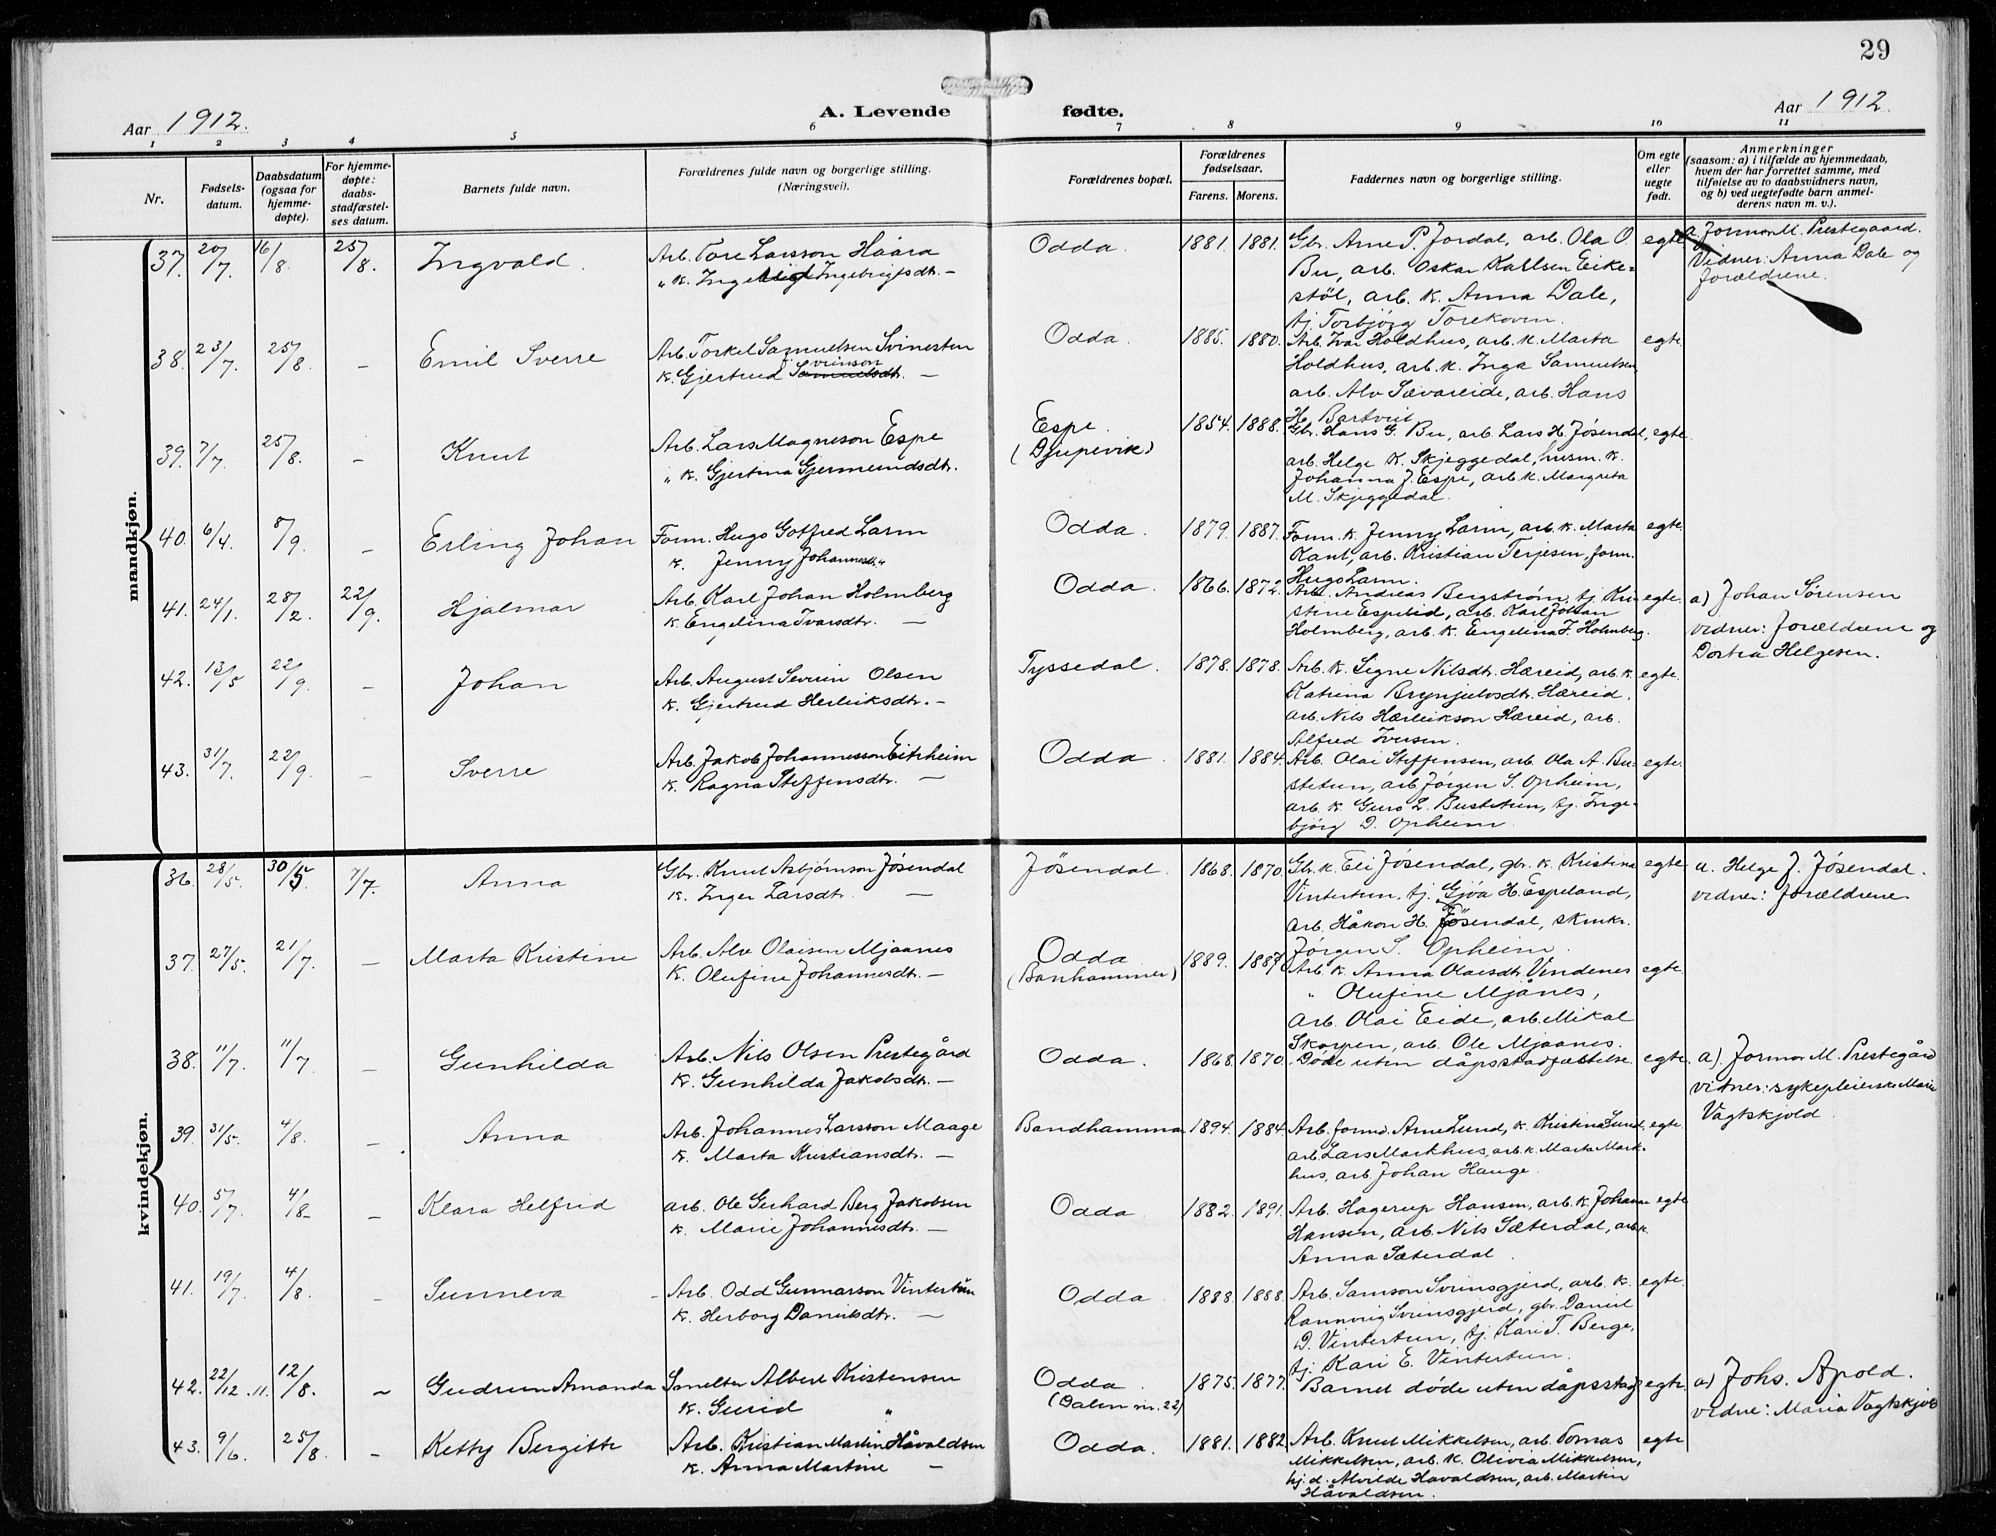 29
Aar 1912.
A. Levende fødte.
Aar 1912
1 2 3 4 5 6 7 8 9 10 11
Nr.
Fødsels-
datum.
Daabsdatum
(ogsaa for
hjemme-
døpte).
For hjemme-
døpte:
daabs-
stadfæstel-
ses datum.
Barnets fulde navn.
Forældrenes fulde navn og borgerlige stilling.
(Næringsvei).
Forældrenes bopæl.
Forældrenes
fødselsaar.
Farens. Morens.
Faddernes navn og borgerlige stilling.
Om egte
eller
uegte
født.
Anmerkninger
(saasom: a) i tilfælde av hjemmedaab,
hvem der har forrettet samme, med
tilføielse av to daabsvidners navn,
og b) ved uegtefødte barn anmel-
derens navn m. v.).
mandkjøn.
37. 20/7 16/8 25/8. Ingvald.
Arb. Tore Larsson Haara
" k. Ingebrigtsdt. —
Odda. 1881. 1881.
Gbr. Arne P. Jordal, arb. Ola O.
Bu, arb. Oskar Karlsen Eike=
støl, arb. k. Anna Dale,
tj. Torbjørg Torekoven.
egte
a. Jormor M. Prestegaard.
Vidner: Anna Dale og
forældrene.
38. 23/7. 25/8. – Emil Sverre
Arb. Torkel Samuelsen Svinesten
k. Gjertrud Samuelsdt. —
Odda. 1885. 1880.
Arb. Ivar Holdhus, arb. k. Marta
Holdhus, arb. k. Inga Samuelsen
arb. Alv Sævareide, arb. Hans
H. Bartveit
egte
39. 7/7. 25/8. – Knut
Arb. Lars Magneson Espe
" k. Gjertina Gjermundsdt.
Espe.
(Djupevik)
1854. 1888.
Gbr. Hans G. Bu, arb. Lars H. Jøsendal,
arb. Helge K. Skjeggedal, husm. k.
Johanna J. Espe, arb. k. Margreta
M. Skjeggedal.
egte.
40. 6/4. 8/9. – Erling Johan
Form. Hugo Gotfred Larm
k. Jenny Johannesdt.
Odda. 1879. 1887.
Form. k. Jenny Larm, arb. k. Marta
Kant, arb. Kristian Terjesen, form.
Hugo Larm.
egte
41. 24/1. 28/2. 22/9. Hjalmar
Arb. Karl Johan Holmberg
k. Engelina Ivarsdt. —
Odda. 1866. 1872.
Arb. Andreas Bergstrøm, tj. Kri
stine Espelid, arb. Karl Johan
Holmberg, arb. k. Engelina I. Holmberg.
egte.
a) Johan Sørensen
vidner: Forældrene og
Dortea Helgesen.
42. 13/5 22/9. – Johan
Arb. August Severin Olsen
k. Gjertrud Herleiksdtr. –
Tyssedal. 1878. 1878.
Arb. k. Signe Nilsdt. Hæreid, arb. k.
Katrina Brynjulvsdt. Hæreid,
arb. Nils Hærleikson Hæreid, arb.
Alfred Iversen.
egte.
43. 31/7. 22/9. – Sverre
Arb. Jakob Johannesson Eitrheim
k. Ragna Steffensdtr. —
Odda. 1881. 1884.
Arb. Olai Steffensen, arb. Ola A. Bu-
stetun, arb Jørgen S. Opheim,
arb. k. Guro L. Bustetun, tj. Inge-
bjørg D. Opheim.
egte.
kvindekjøn.
36. 28/5. 30/5. 7/7. Anna
Gbr. Knut Asbjørnson Jøsendal
k. Inger Larsdt. —
Jøsendal. 1868. 1870.
Gbr. k. Eli Jøsendal, gbr. k. Kristina
Vintertun, tj. Gjøa H. Espeland,
arb. Håkon H. Jøsendal, skmkr.
Jørgen S. Opheim.
egte
a. Helge J. Jøsendal.
vidner: forældrene
37. 27/5. 21/7. – Marta Kristine
Arb. Alv Olaisen Mjaanes
k. Olufine Johannesdt. –
Odda.
(Banhammer)
1889. 1887
Arb. k. Anna Olaisdt. Vendenes
" Olufine Mjånes,
Arb. Olai Eide, arb. Mikal
Skorpen, arb. Ole Mjaanes.
egte.
38. 11/7. 11/7 – Gunhilda
Arb. Nils Olsen Prestegård
k. Gunhilda Jakobsdt. –
Odda. 1868. 1870.
Døde uten dåpsstadfæstelse
egte.
a) Jormor M. Prestegård
vidner: sykepleierske Marie
Vagtskjold.
39. 31/5. 4/8. – Anna
Arb. Johannes Larsson Maage
k. Marta Kristiansdt. –
Bandhammar 1894. 1884.
Arb. formd. Arne Lund, k. Kristina Lund,
arb. Lars Markhus, arb. k. Marta Mark-
hus, arb. Johan Hauge.
egte.
40. 5/7. 4/8 – Klara Helfrid
arb. Ole Gerhard Berg Jakobsen
k. Marie Johannesdt. –
Odda. 1882. 1891.
Arb. Hagerup Hansen, arb. k. Johanne
Hansen, arb. Nils Sæterdal, arb k.
Anna Sæterdal.
egte
41. 19/7. 4/8. – Sunneva –
Arb. Odd Gunnarson Vintertun
k. Herborg Danielsdt. —
Odda. 1888. 1888.
Arb. Samson Svinsgjerd, arb. k.
Rannveig Svinsgjerd, gbr. Daniel
D. Vintertun, tj. Kari T. Berge,
tj. Kari E. Vintertun.
egte.
42. 22/12 .11. 12/8. – Gudrun Amanda
Smelter Albert Kristensen
k. Gurid "
Odda.
(Dalen nr. 22)
1875. 1877.
Barnet døde uten dåpsstadf.
egte.
a) Johs. Apold.
vidne: Maria Vagtskjold
43. 9/6. 25/8. – Ketty Bergitte
Arb. Kristian Martin Håvaldsen
k. Anna Martine —
Odda. 1881. 1882
Arb. Knut Mikkelsen, arb. Tomas
Mikkelsen, arb. k. Olivia Mikkelsen,
hj. d. Alvilde Havaldsen, arb. Martin
Håvaldsen.
egte